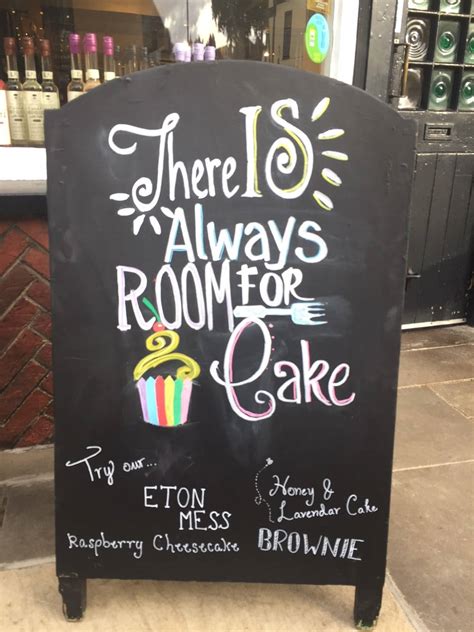 There IS
Always
ROOM FOR
Cake
Try our...
ETON
MESS
Raspberry Cheesecake
Honey &
Lavendar Cake
BROWNIE